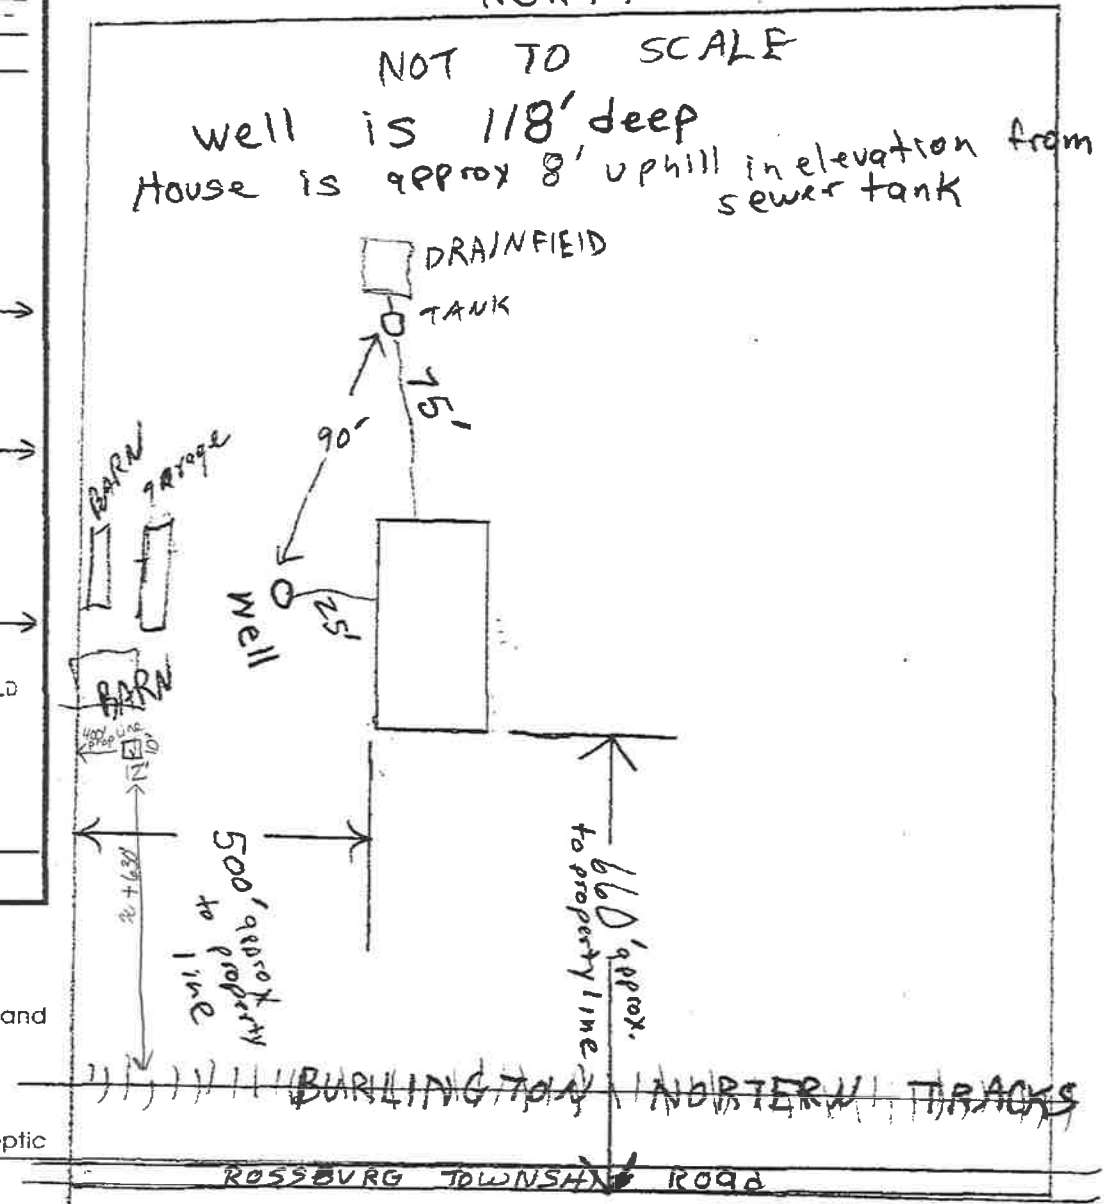 NORTH
NOT TO SCALE
Well is 118' deep
House is approx 8' uphill in elevation from
sewer tank
DRAINFIELD
TANK
75'
90'
BARN
garage
Well
25'
BARN
400'
prop line
10'
12'
500' approx
to property
line
660' approx.
to property line
and
BURLINGTON NORTERN TRACKS
ptic
ROSSBURG TOWNSHIP Road